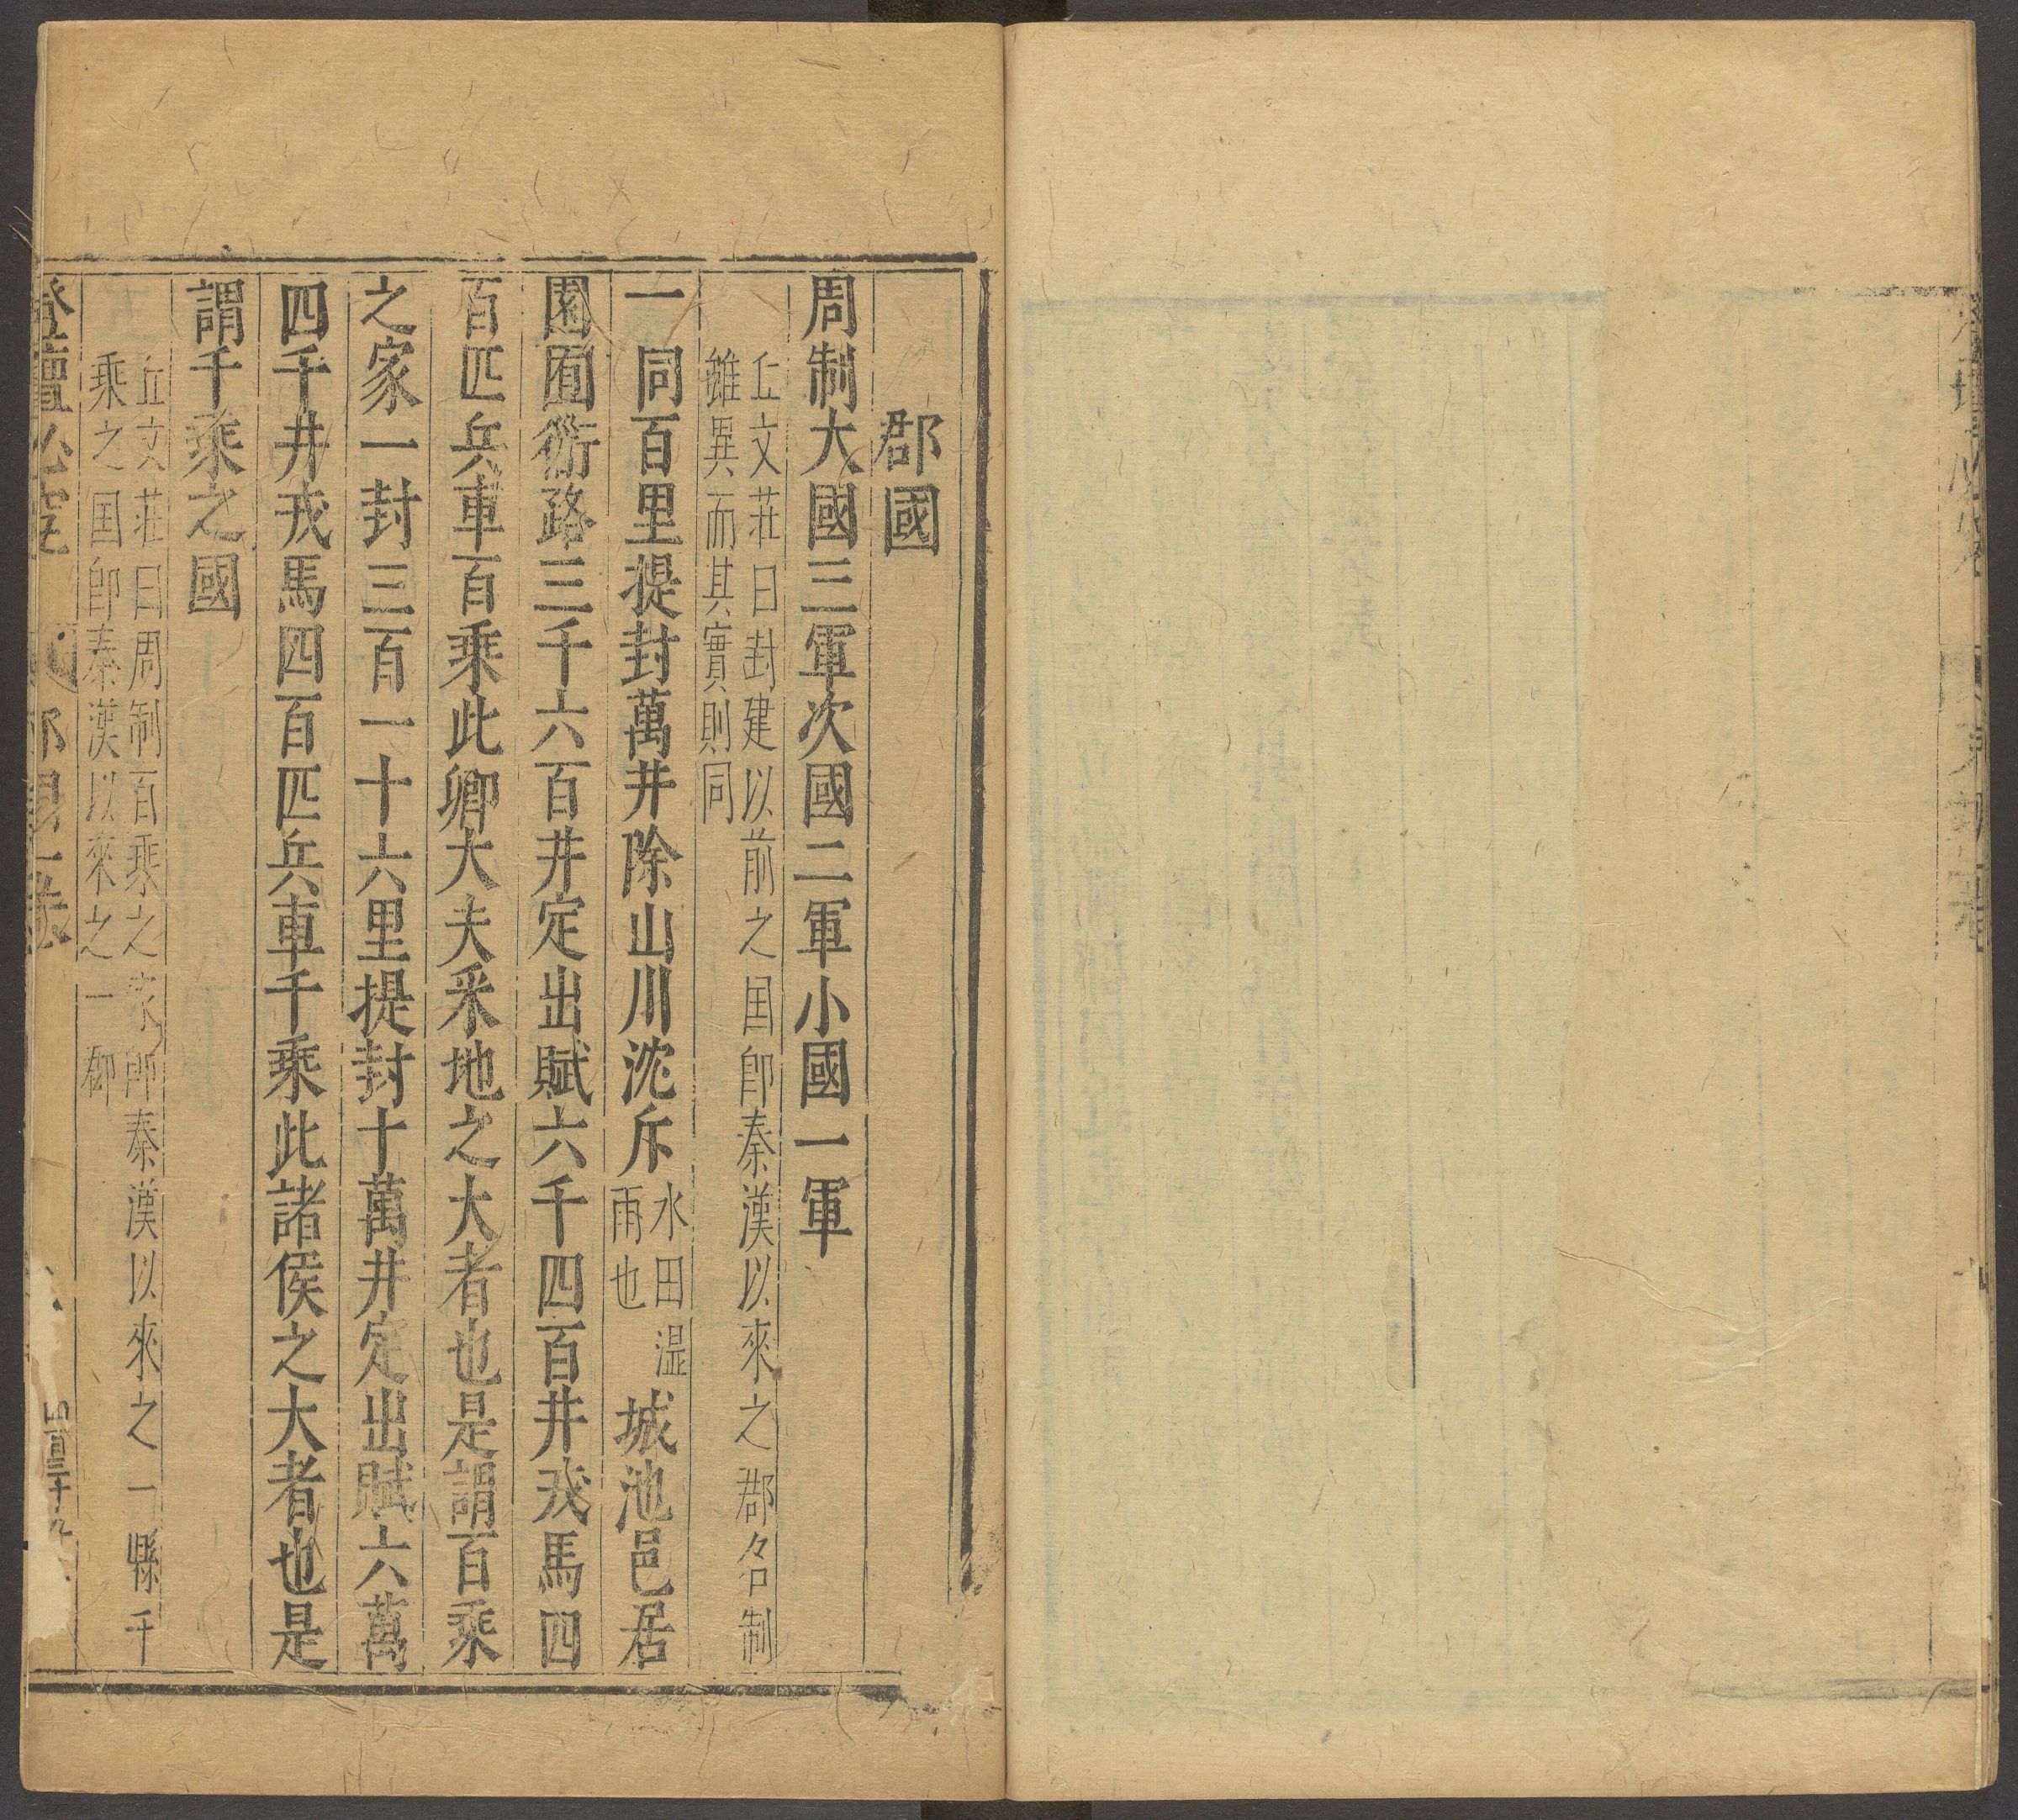 郡國
周制大國三軍次國二軍小國一軍
丘文莊曰封建以前之国卽秦漢以來之郡名制
雖異而其實則同
一同百里提封萬井除山川沈斥水田湿雨也城池邑居
園囿衖路三千六百井定出賦六千四百井戎馬四
百匹兵車百乘此卿大夫釆地之大者也是謂百乘
之家一封三百一十六里提封十萬井定出賦六萬
四千井戎馬四百匹兵車千乘此諸侯之大者也是
謂千乘之國
丘文莊曰周制百乘之家卽秦漢以來之一縣千
乘之国卽秦漢以來之一郡
登壇必究